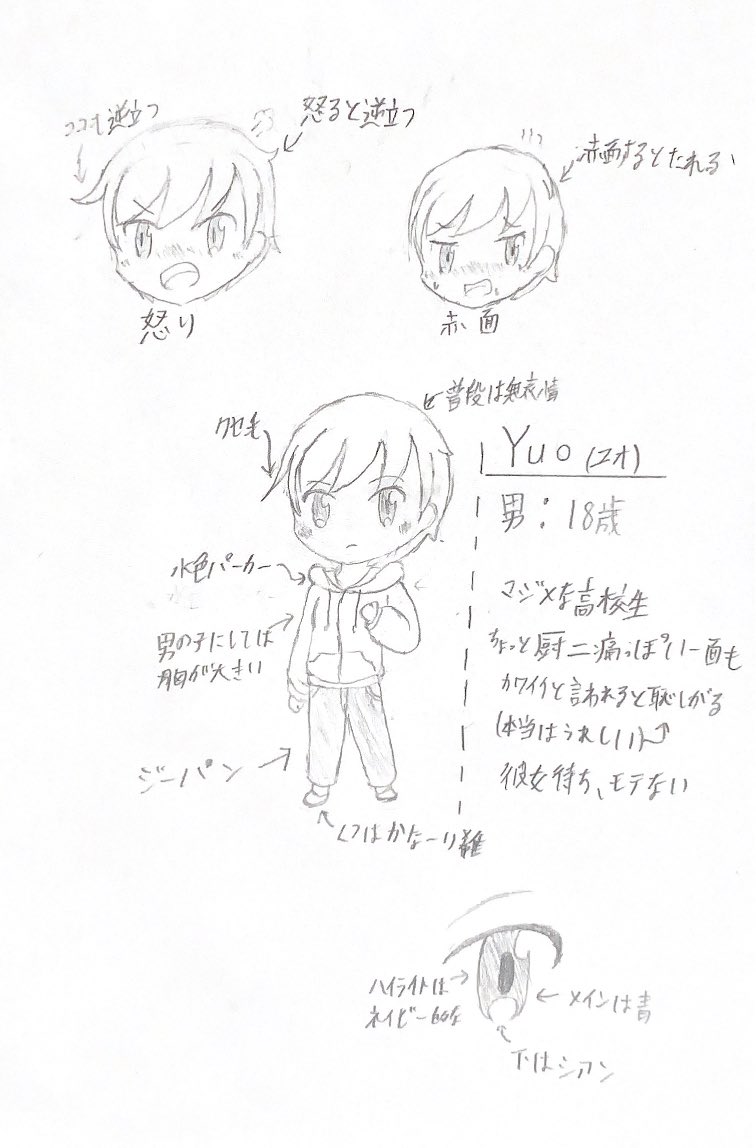 ココも逆立つ
怒ると逆立つ
赤面するとたれる
怒り
赤面
普段は無表情
クセ毛
Yuo (ユオ)
男: 18歳
水色パーカー
マジメな高校生
男の子にしては
胸が大きい
ちょっと厨二痛っぽい一面も
カワイイと言われると恥しがる
(本当はうれしい)
ジーパン
彼女待ち、モテない
くつはかなーり雑
ハイライトは
ネイビー的な
メインは青
下はシアン